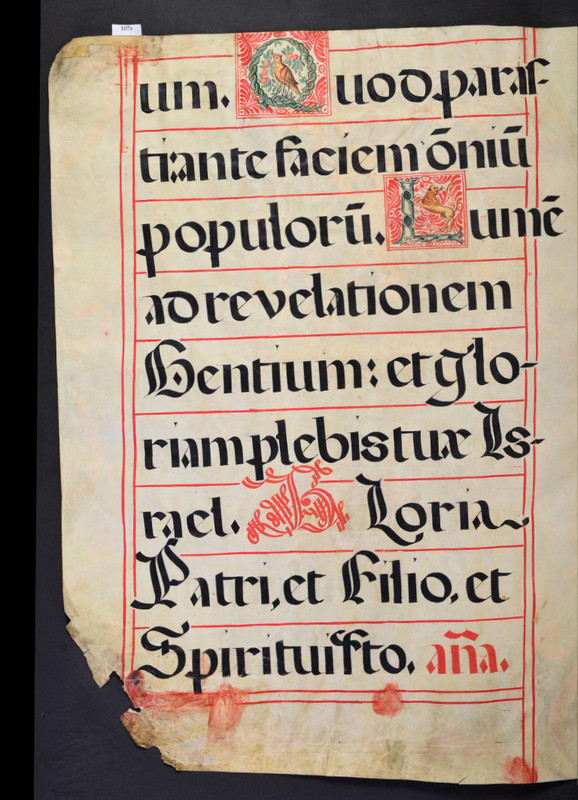 107v
um. Quod paras-
ti: ante faciem õniũ
populorũ. Lumẽ
ad revelationem
Gentium: et glo-
riam plebis tuæ Is-
rael. G Loria
Patri, et Filio, et
Spiritui Sto. aña.